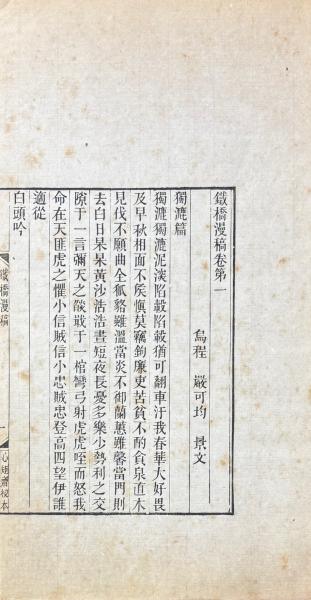 鐵橋漫稿卷第一
烏程 嚴可均 景文
獨漉篇
獨漉獨漉泥淤陷轂陷轂猶可翻車汙我春華大好畏
及早秋相面不矦愼莫竊鉤廉吏苦貧不酌貪泉直木
見伐不願曲全狐貉雖溫當炎不御蘭蕙雖馨當門則
去白日杲杲黃沙浩浩晝短夜長憂多樂少勢利之交
隙于一言彌天之燄戢于一棺彎弓射虎虎咥而怒我
命在天匪虎之懼小信賊信小忠賊忠登高四望伊誰
適從
白頭吟
鐵橋漫稿
一
心矩齋校本